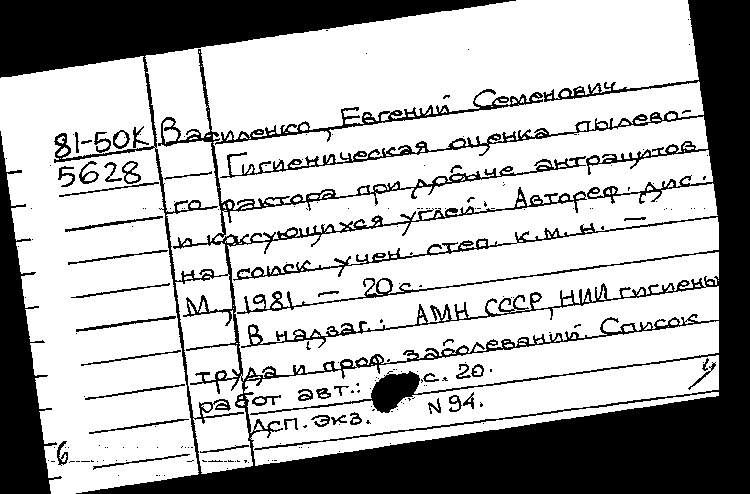 81-50К Василенко, Евгений Семенович.
5628 Гигиеническая оценка пылево-
го фактора при добыче антрацитов
и коксующихся углей: Автореф. дис.
на соиск. учен. степ. к.м.н. —
М., 1981. — 20 с.
В надзаг.: АМН СССР, НИИ гигиены
труда и проф. заболеваний. Список
работ авт.: с. 20.
Дсп. экз. N 94.
6